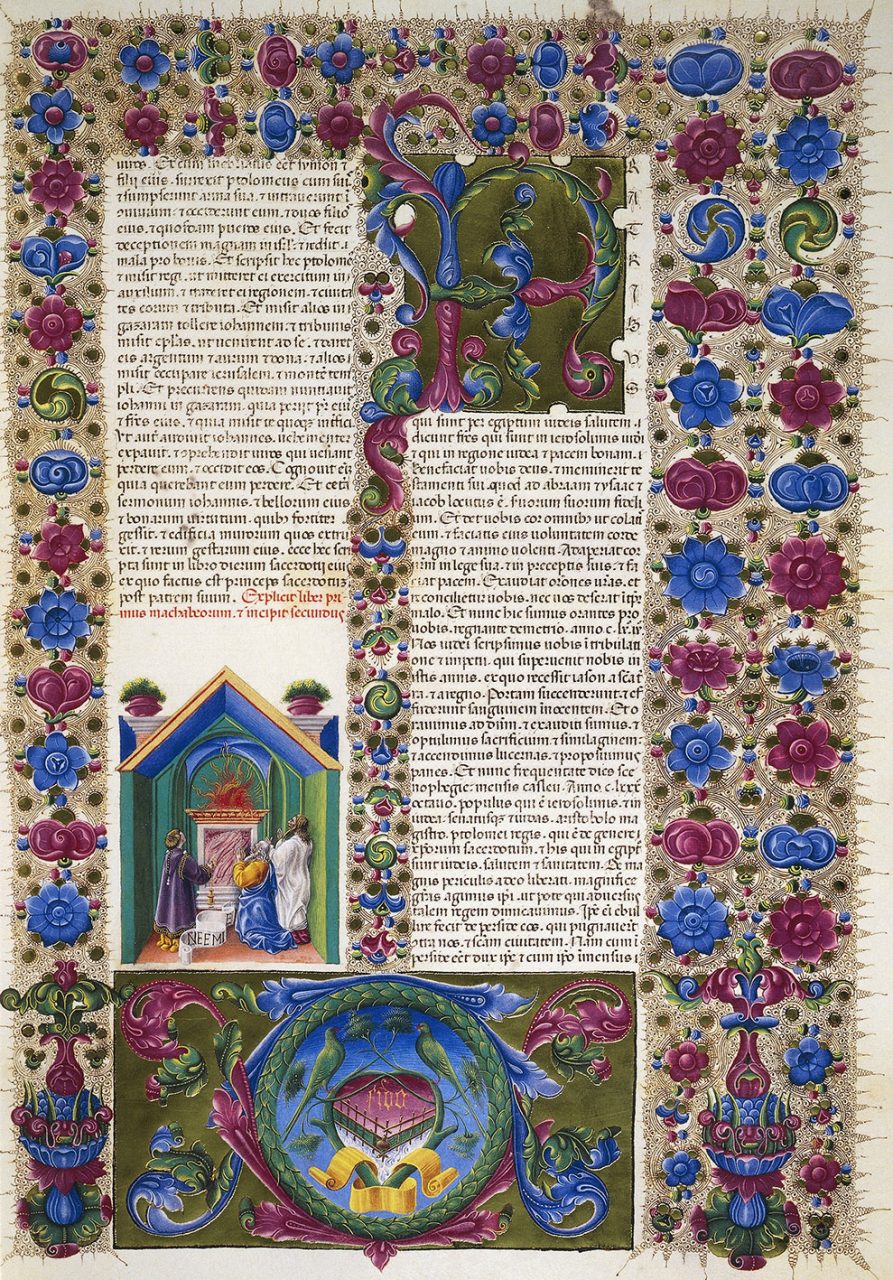 filii eius. surrexit ptolomeus cum suis
& sumpserunt arma sua. & intraverunt i
convivium. & occiderunt eum. & duos filios
eius. & quosdam pueros eius. Et fecit
deceptionem magnam in isrl. & reddit.
mala pro bonis. Et scripsit hec ptolomeus
& misit regi. ut mitteret ei exercitum in
auxilium. & traderet ei regionem. & civita
tes eorum & tributa. Et misit alios in
gazaram tollere iohannem. & tribunis
misit eplas. ut venirent ad se. & daret
eis argentum & aurum & dona. & alios
misit occupare ierusalem. & montē tem
pli. Et precurrens quidam nuntiavit
iohanni in gazaram. quia periit pr̄ eius
& fr̄es eius. & quia misit te quoq̄ interfici.
Ut aut̄ audivit iohannes. vehementer
expavit. & comprehendit viros qui venerant
perdere eum. & occidit eos. Cognovit eni
quia querebant eum perdere. Et cetera
sermonum iohannis. & bellorum eius
& bonarum virtutum. quibus fortiter
gessit. & edificia murorum quos extru
xit. & rerum gestarum eius. ecce hec scri
pta sunt in libro dierum sacerdotii eius
ex quo factus est princeps sacerdotum
post patrem suum. Explicit liber pri
mus machabeorum. & incipit secundus
NEEMI
F
RATRIBVS
qui sunt per egiptum iudeis salutem.
dicunt fr̄es qui sunt in ierosolimis iudei
& qui in regione iudea & pacem bonam.
benefaciat vobis deus. & meminerit te
stamenti sui. quod ad abraam & ysaac &
iacob locutus ē. servorum suorum fideli
um. Et det vobis cor omnibus ut colatis
eum. & faciatis eius voluntatem corde
magno & animo volenti. Adaperiat cor
vr̄m in lege sua. & in preceptis suis. & fa
ciat pacem. Exaudiat orōnes vr̄as. &
reconcilietur vobis. nec vos deserat in tp̄r
malo. Et nunc hic sumus orantes pro
vobis. regnante demetrio. anno. c. lx. ix
Nos iudei scripsimus vobis i tribulati
one & impetu. qui supervenit nobis in
istis annis. ex quo recessit iason a scā t̄
ra. & a regno. Portam succenderunt. & ef
fuderunt sanguinem inocentem. Et o
ravimus ad dn̄m. & exauditi sumus. &
optulimus sacrificium. & similaginem.
& accendimus lucernas. & proposuimus
panes. Et nunc frequentate dies sce
nophegie. mensis casleu. Anno. c. lxxx
octavo. populus qui ē ierosolimis. & in
iudea. senatusq̄ & iudas. aristobolo ma
gistro. ptolomei regis. qui ē de genere
xp̄orum sacerdotum. & his qui in egipto
sunt iudeis. salutem & sanitatem. De ma
gnis periculis a deo liberati. magnifice
gratias agimus ipi. ut pote qui adversus
talem regem dimicavimus. Ipe eni ebul
lire fecit de perside eos. qui pugnaverunt
contra nos. & scām civitatem. Nam cum i
perside eēt dux ipe & cum ipo imensus
fido